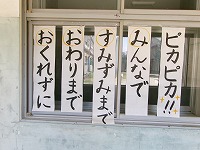 ピカピカ!!
みんなで
すみずみまで
おわりまで
おくれずに